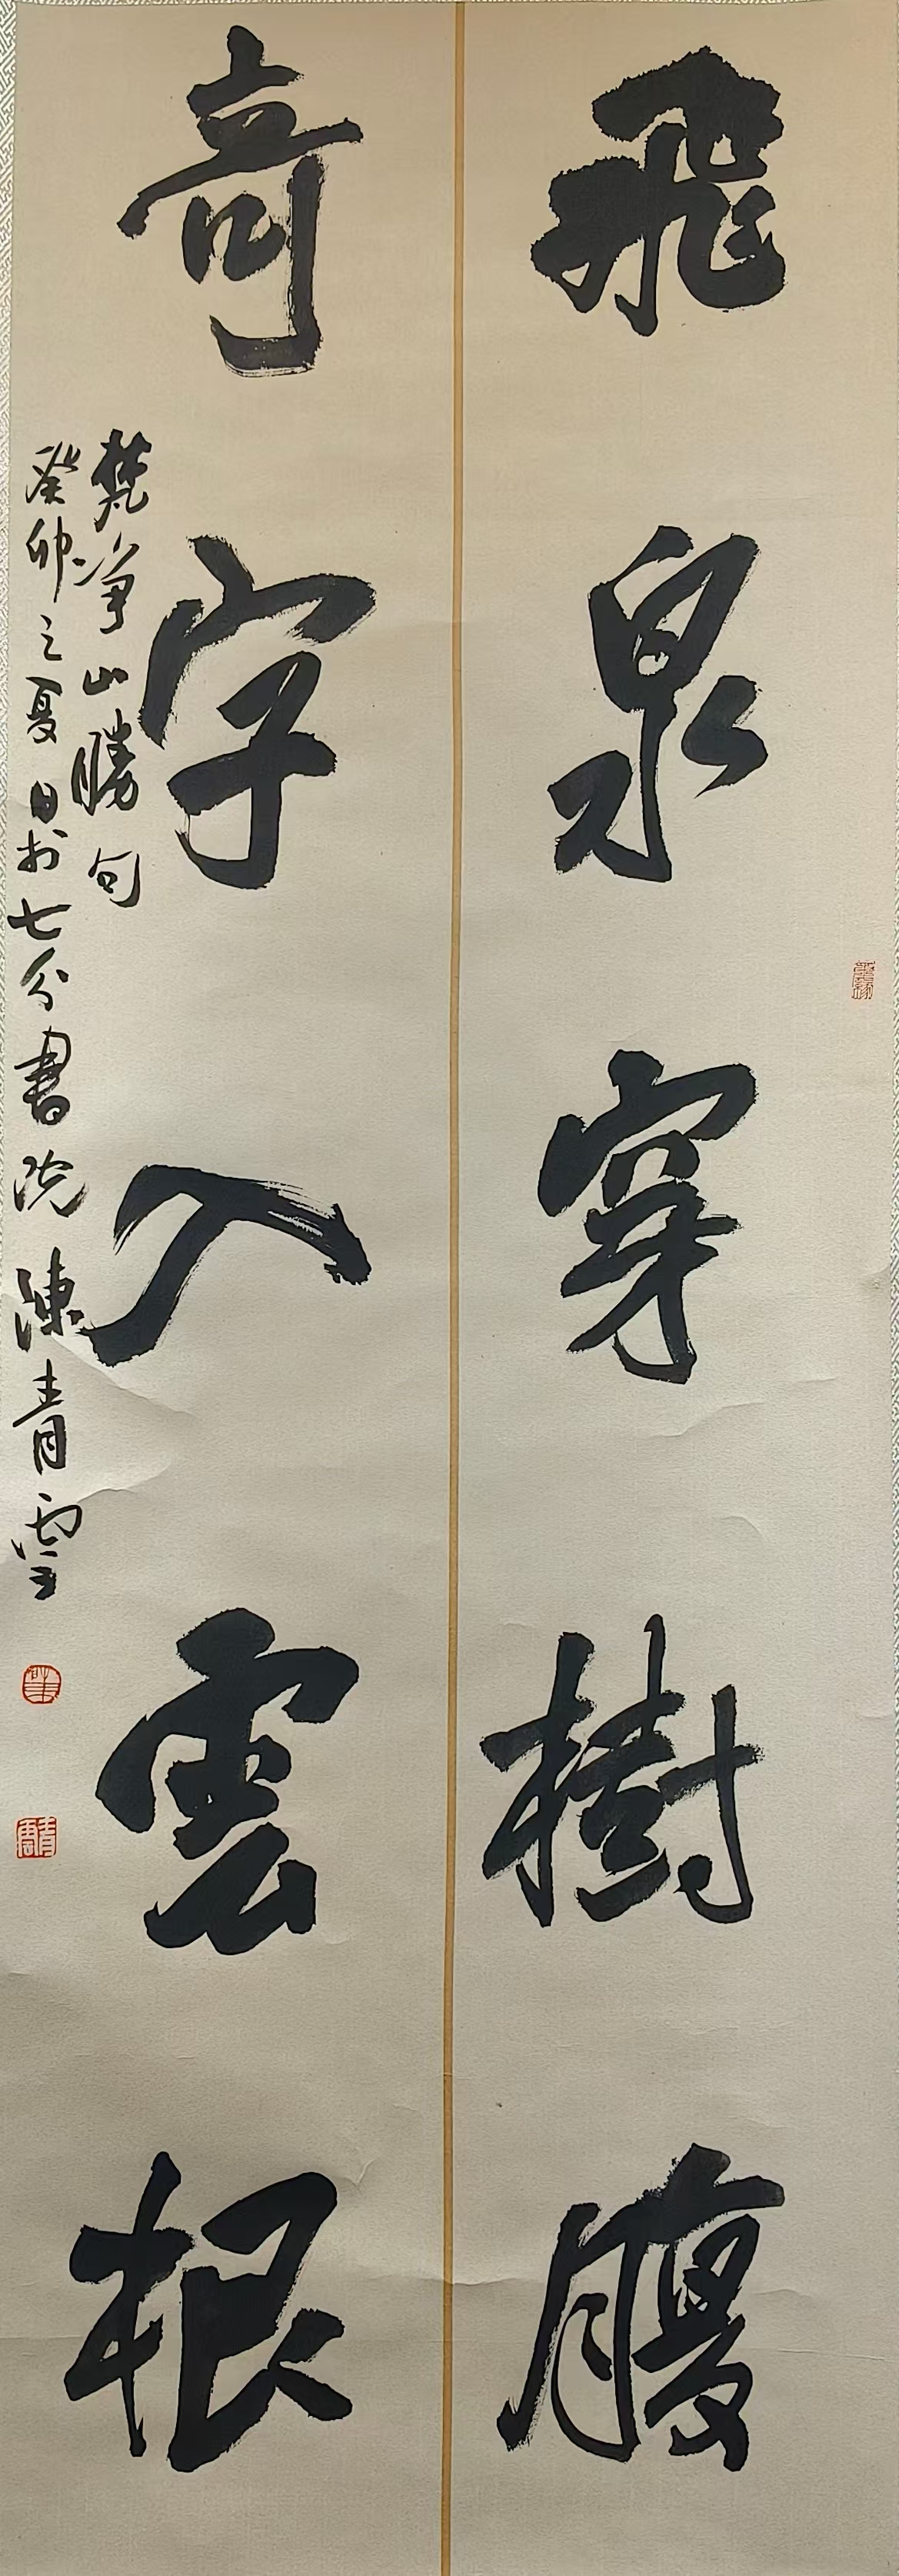 飛泉穿樹腹
奇字入雲根
梵淨山勝句
癸卯之夏日於七分書院陳青雲